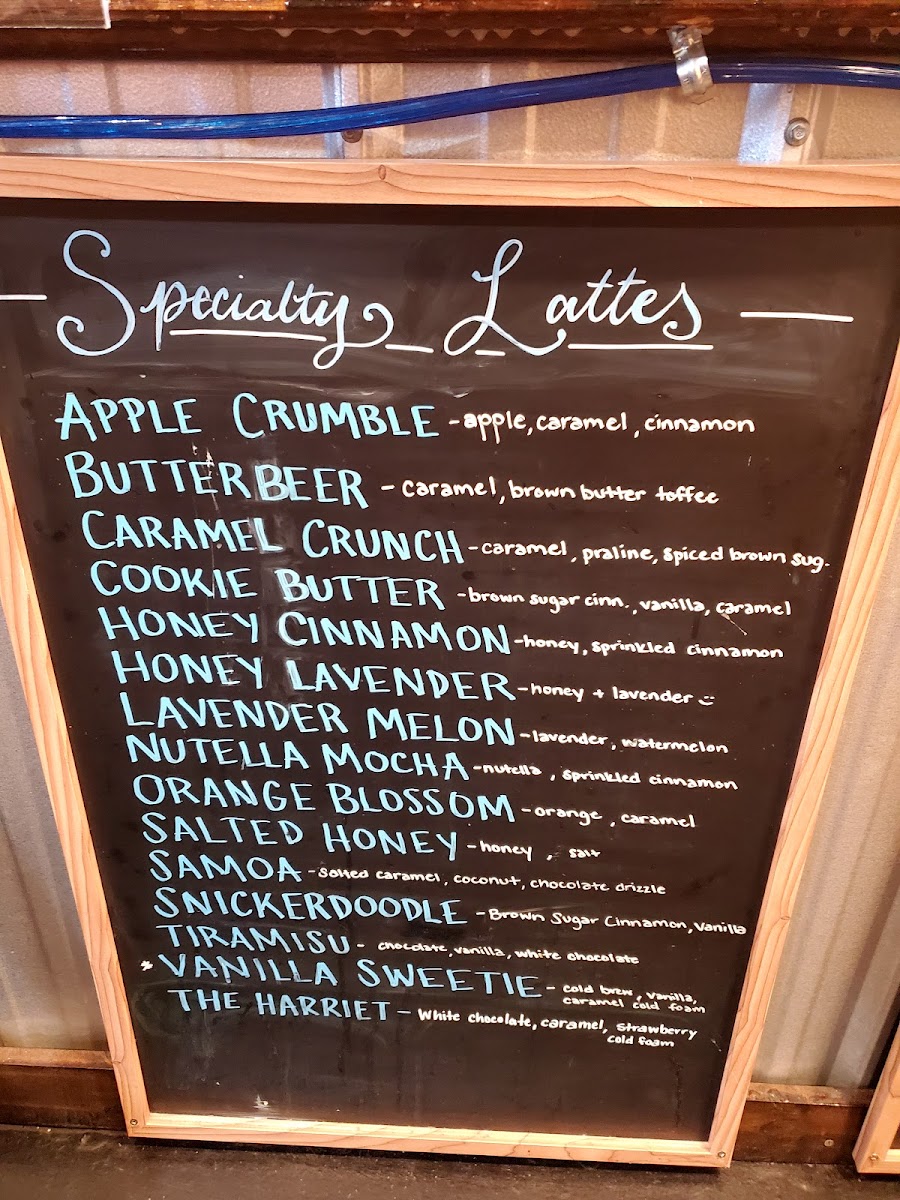 Specialty Lattes
APPLE CRUMBLE - apple, caramel, cinnamon
BUTTERBEER - caramel, brown butter toffee
CARAMEL CRUNCH - caramel, praline, spiced brown sug.
COOKIE BUTTER - brown sugar cinn., vanilla, caramel
HONEY CINNAMON - honey, sprinkled cinnamon
HONEY LAVENDER - honey + lavender :)
LAVENDER MELON - lavender, watermelon
NUTELLA MOCHA - nutella, sprinkled cinnamon
ORANGE BLOSSOM - orange, caramel
SALTED HONEY - honey, salt
SAMOA - salted caramel, coconut, chocolate drizzle
SNICKERDOODLE - Brown Sugar Cinnamon, Vanilla
TIRAMISU - chocolate, vanilla, white chocolate
* VANILLA SWEETIE - cold brew, vanilla,
caramel cold foam
THE HARRIET - White chocolate, caramel, strawberry
cold foam